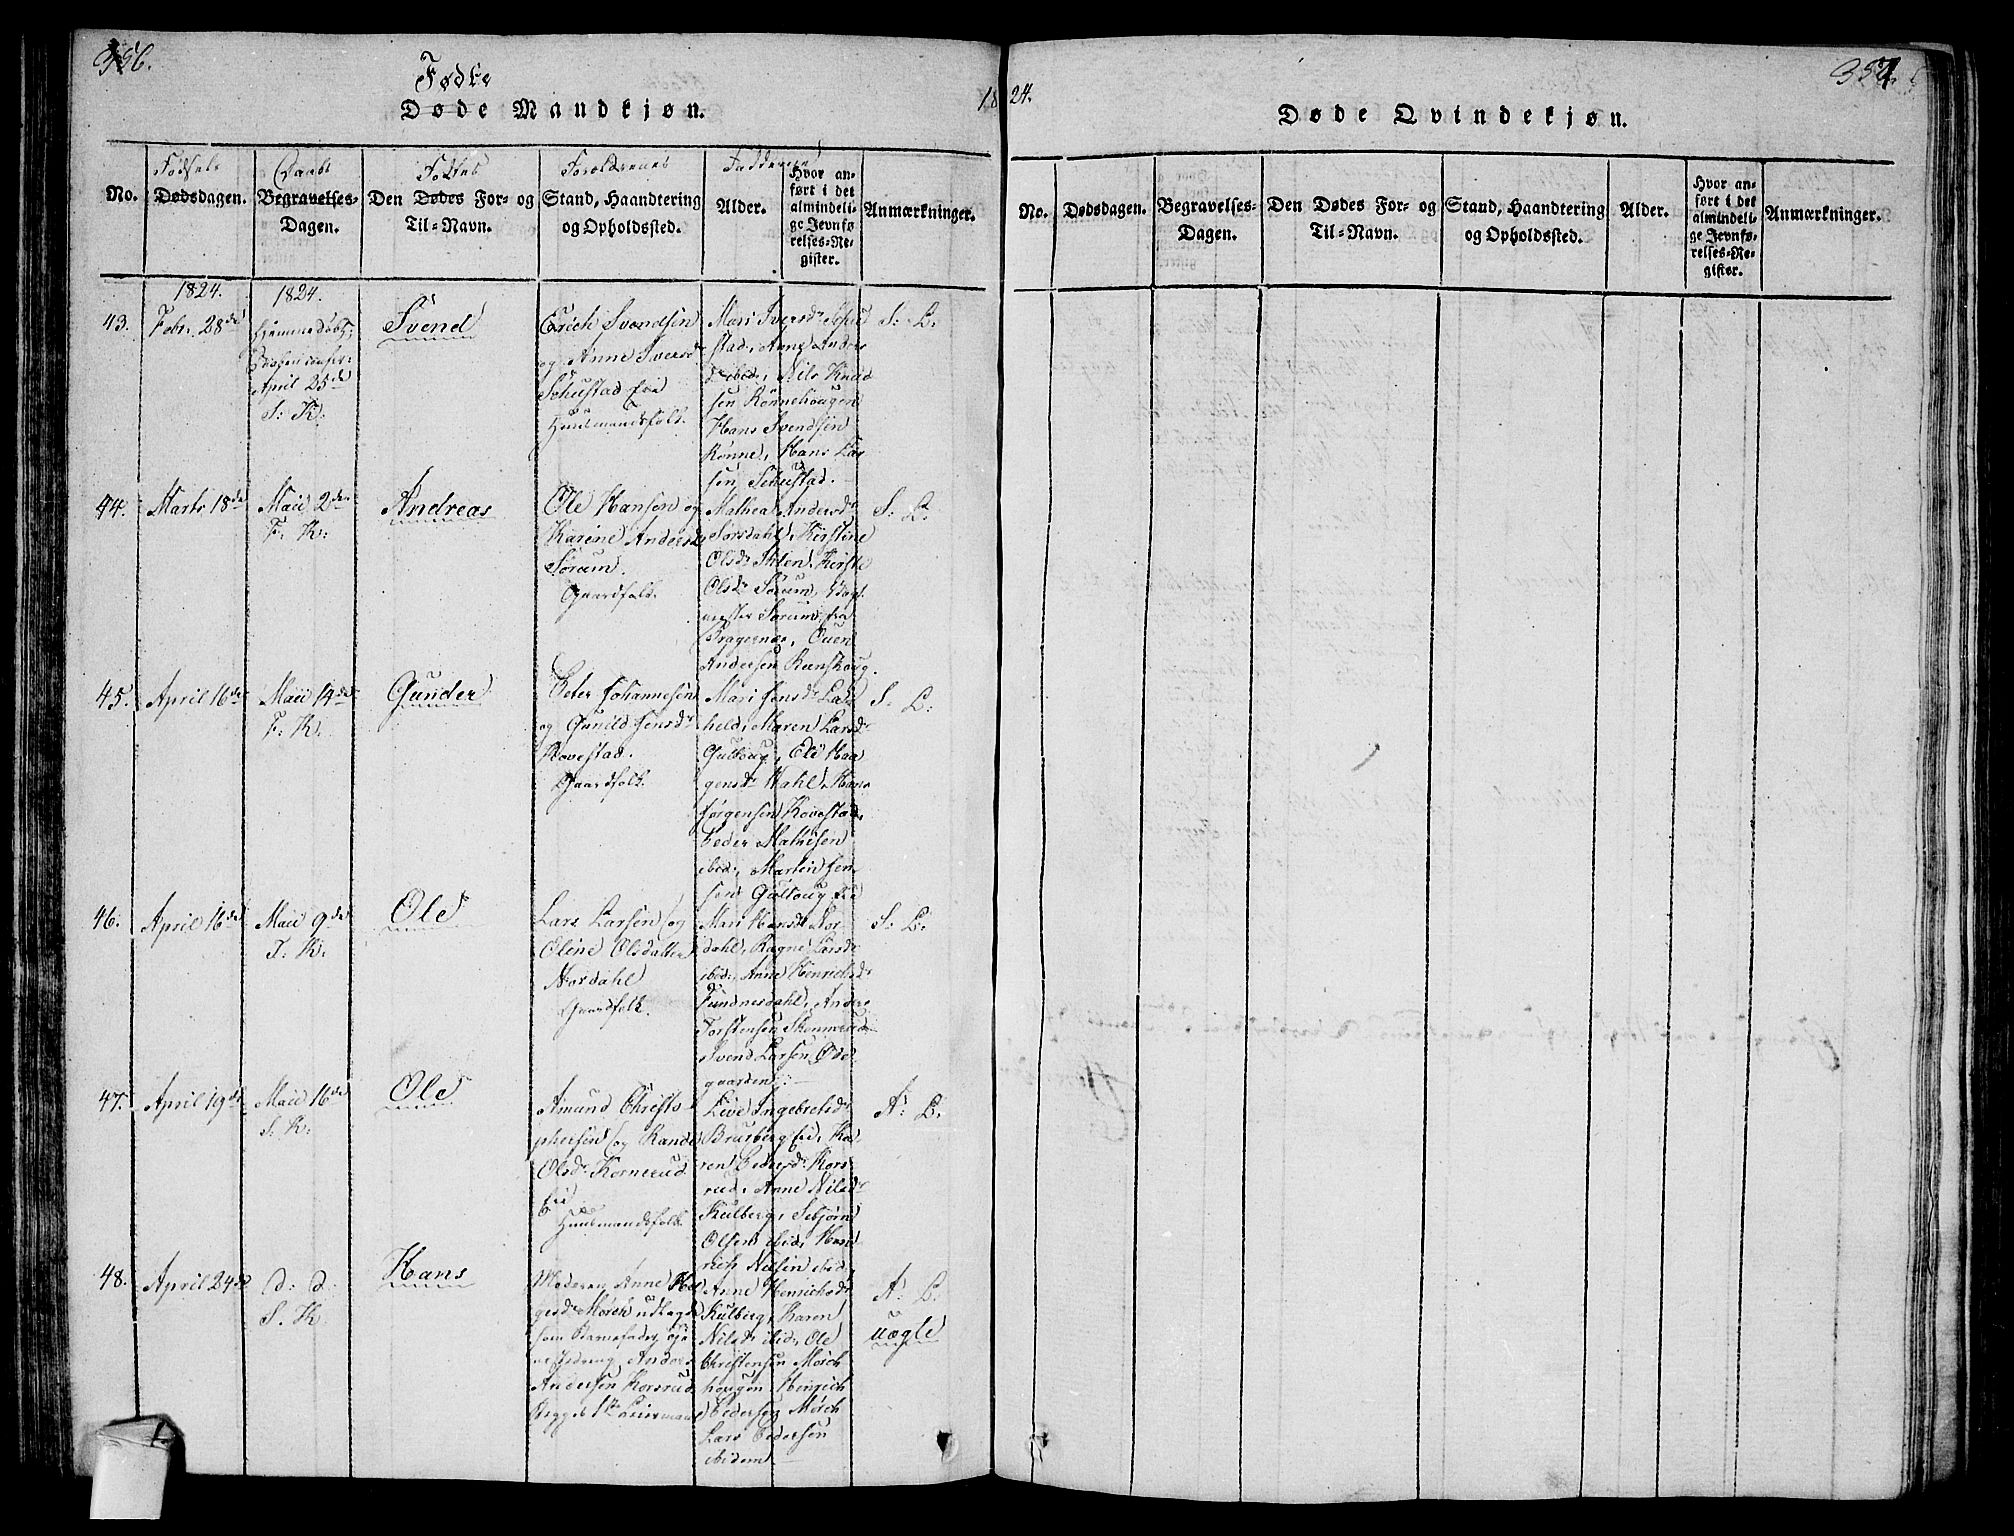 356.
Fødte
Døde Mandkjøn.
1824.
Fødsels
Daabs
Fødtes
Forældrenes
Fadderne
No.
Dødsdagen.
Begravelses-
Dagen.
Den Dødes For- og
Til-Navn.
Stand, Haandtering
og Opholdssted.
Alder.
Hvor an-
ført i det
almindeli-
ge Jevnfø-
relses-Re-
gister.
Anmærkninger.
43.
1824.
Febr. 28de
1824.
Hjemmedøbt
April 25de
S: K:
Svend
Erich Svendsen
og Anne Iversdr
Schustad Eie
Huusmandsfolk.
Mari Iversdr Schu
stad, Anne Anders
dr ibid:, Nils Knud
sen Rønnehougen
Hans Svendsen
Rønne, Hans Lar
sen Schustad.
S: L:
44.
Marts 18de
Maii 2den
F. K:
Andreas
Ole Hansen og
Karine Andersdr
Sørum.
Gaardfolk.
Mathea Andersdr
Sørsdahl, Kirstine
Olsdr Stilen, Kirstie
Olsdr Sørum, Vogt
mester Sørum fra
Bragernæs, Ouen
Andersen Reenskoug.
S: L:
45.
April 16de
Maii 14de
F: K.
Gunder
Peter Johannesen
og Gunild Jensdr
Rovestad.
Gaardfolk.
Mari Jensdr Lade
held, Maren Larsdr
Gulloug, Eli Haa
gensdr Wahl, Hans
Jørgensen Rovestad,
Peder Mathisen
ibid:, Martin Jen
sen Gulloug Eie
S. L:
46.
April 16de
Maii 9de
T. K.
Ole
Lars Larsen og
Oline Olsdatter
Nordahl
Gaardfolk.
Mari Hansdr Nor
dahl, Ragne Larsdr
ibid:, Anne Henrichsdr
Fundnesdahl, Anders
Torstensen Skennerud
Svend Larsen Øde
gaarden.
S. L:
47.
April 19de
Maii 16de
S. K:
Ole
Amund Christo
phersen og Rande
Olsdr Kornerud
Eie
Huusmandsfolk
Live Ingebretsdr
Brusberg Eie, Ka
ren Pedersdr Kors
rud, Anne Nilsdr
Kulberg, Sebjørn
Olsen ibid, Hen
rich Nilsen ibid.
A: L:
48.
April 24de
d: d:
S. K.
Hans
Moderen Anne Hel
gesdr Mørch udlagde
som Barnefader
Anders
Andersen Korsrud
Begges 1ste Leiermaal
Anne Henrichsdr
Kulberg, Karen
Nilsdr ibid:, Ole
Christensen Mørch
hougen Henrich
Pedersen Mørch
Lars Pedersen
ibidem
A: L:
uægte
357.
Døde Qvindekjøn.
No.
Dødsdagen.
Begravelses-
Dagen.
Den Dødes For- og
Til-Navn.
Stand, Haandtering
og Opholdssted.
Alder.
Hvor an-
ført i det
almindeli-
ge Jevnfø-
relses-Re-
gister.
Anmærkninger.